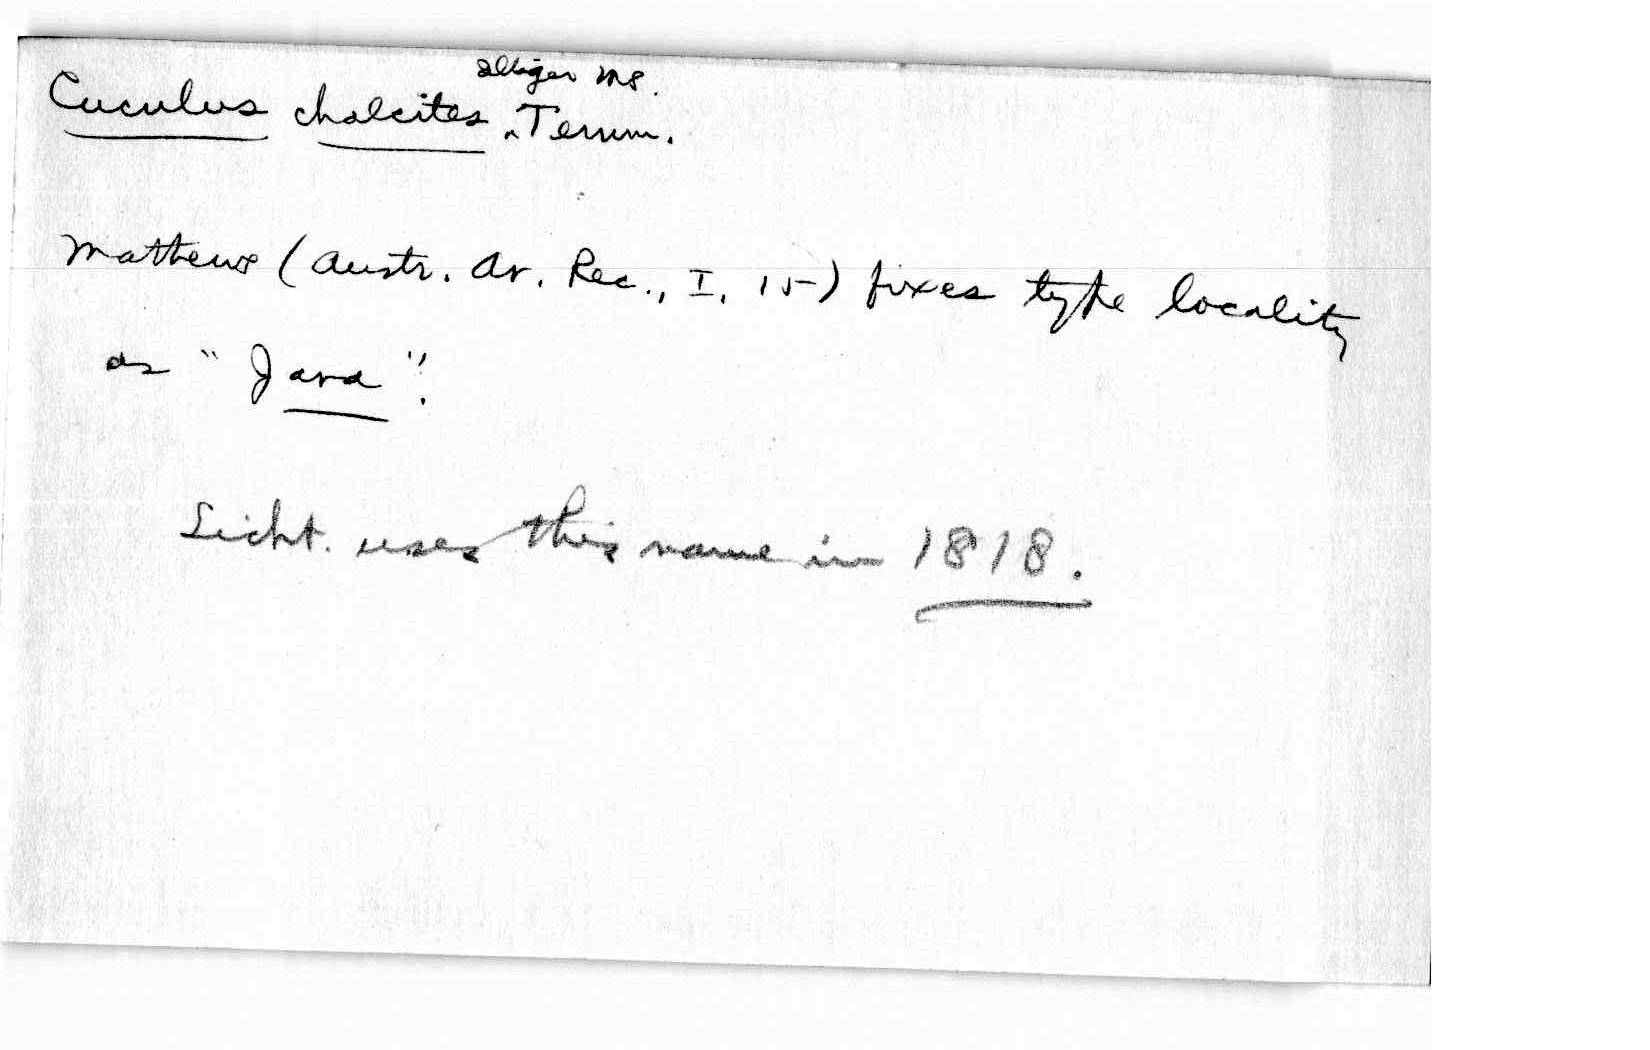 Illiger MS.
Cuculus chalcites ‸Temm.
Mathews (Austr. Av. Rec., I, 15) fixes type locality
as "Java".
Licht. uses this name in 1818.